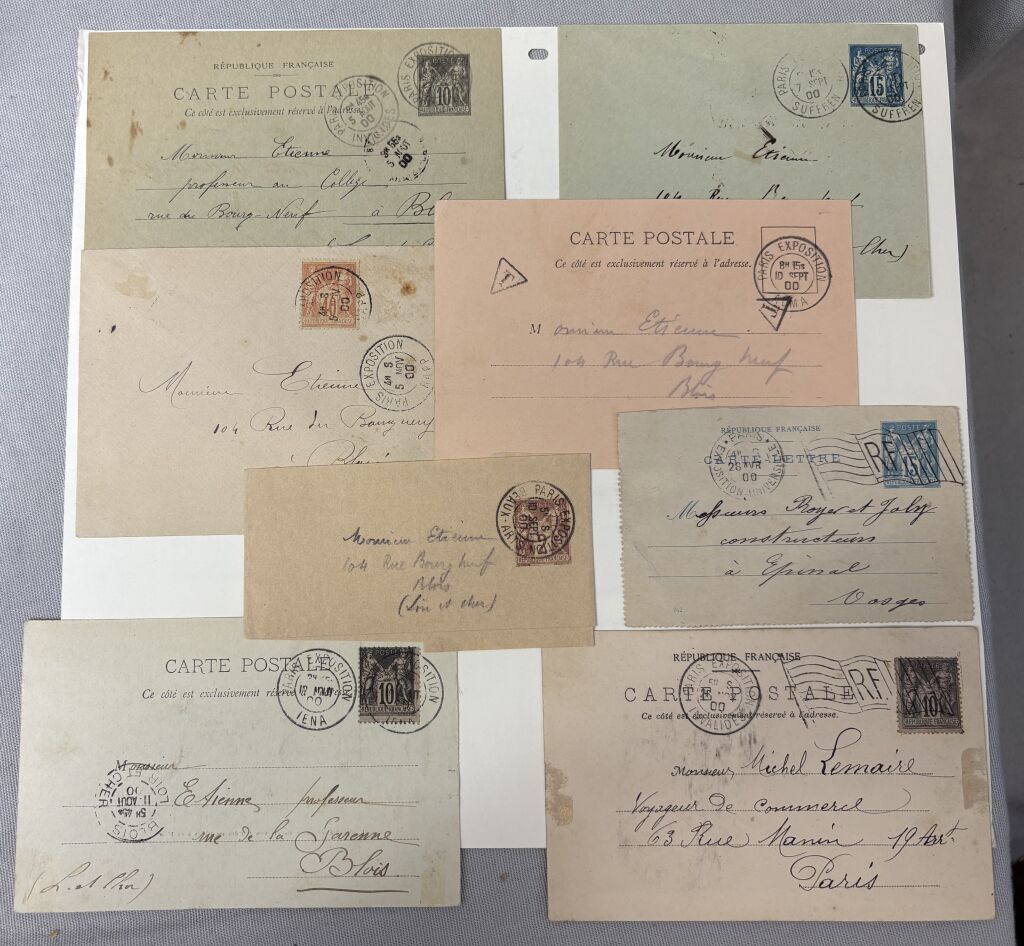 RÉPUBLIQUE FRANÇAISE
CARTE POSTALE
Ce côté est exclusivement réservé à l'adresse.
PARIS EXPOSITION
5 AOUT
00
POSTE
10
Monsieur Etienne
professeur au Collège
rue du Bourg-Neuf à Bl
PARIS
7 SEPT
00
SUFFREN
POSTE
15
SUFFREN
Monsieur Etienne
104 Rue
Cher)
CARTE POSTALE
Ce côté est exclusivement réservé à l'adresse.
T
PARIS EXPOSITION
8H 15s
10 SEPT
00
T
Monsieur Etienne
104 Rue Bourg neuf
Blois
PARIS EXPOSITION
5 NOV
00
RAPP
Monsieur Etienne
104 Rue du
Blois
RÉPUBLIQUE FRANÇAISE
CARTE-LETTRE
PARIS
28 AVR
00
EXPOSITION-UNIVERSELLE
RF
15
Messieurs Royer et Joly
constructeurs
à Epinal
Vosges
PARIS EXPOSITION
10 SEPT
00
BEAUX-ARTS
Monsieur Etienne
104 Rue Bourg neuf
Blois
(Loir et Cher)
CARTE POSTALE
Ce côté est exclusivement réservé à l'adresse.
PARIS EXPOSITION
00
IENA
10
RÉPUBLIQUE FRANÇAISE
Monsieur
Etienne professeur
rue de la Garenne
Blois
(L. et Cher)
BLOIS
5H 45s
11 AOUT
00
LOIR ET CHER
RÉPUBLIQUE FRANÇAISE
CARTE POSTALE
Ce côté est exclusivement réservé à l'adresse.
PARIS EXPOSITION
00
INVALIDES
R.F.
10
Monsieur Michel Lemaire
Voyageur de commerce
63 Rue Manin 19 Art.
Paris